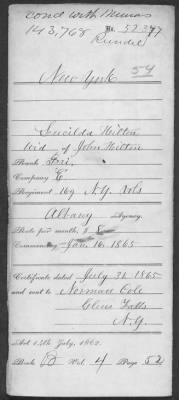 cond with Minors
143,768 No. 52347
Rundel
New York
54
Lucilda Hilton
Wid. of John Hilton
Rank Pri.
Company E
Regiment 169 N.Y. Vols
Albany Agency.
Rate per month, $ 8
Commencing Jan. 16, 1865
Certificate dated July 31, 1865
and sent to Norman Cole
Glens Falls
N.Y.
Act 14th July, 1862.
Book D Vol. 4 Page 52